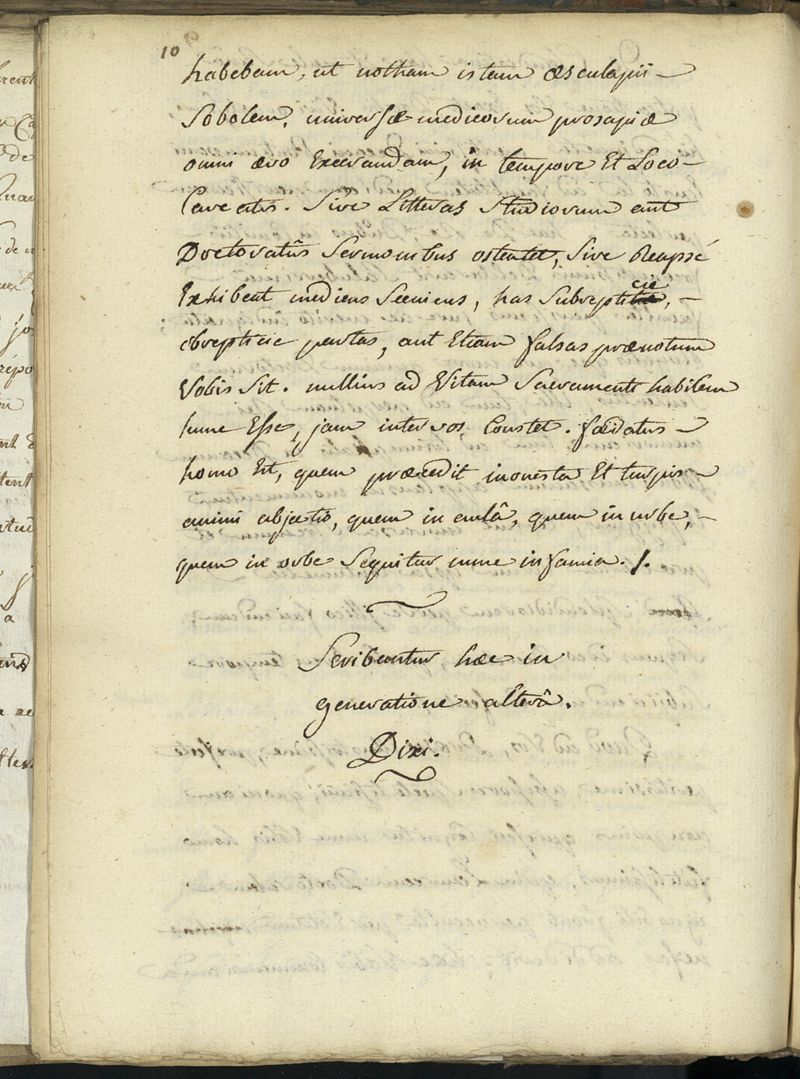 10
habebam, ut notham istam æsculapii –
Sobolem, universæ medicorum prosapiæ
omni ævo Execrandam, in tempore Et Loco –
Caveatis. Sive Litteras Studiorum aut
Doctoratûs Sermonibus ostentet, sive Reapsé
Exhibeat medicus Scenicus, has Subrepticie, –
obrepticie partas, aut Etiam falsas prænotum
Vobis Sit. nullius ad Vitam Sacramenti habilem
hunc Esse, jam inter vos Constet. fœdatus –
homo Est, quem præcedit inonesta Et turpis –
animi abjectio, quem in aulâ, quem in urbe, –
quem in orbe Sequitur nunc infamia. /.
Scribantur hæc in
generatione alterâ.
Dixi.